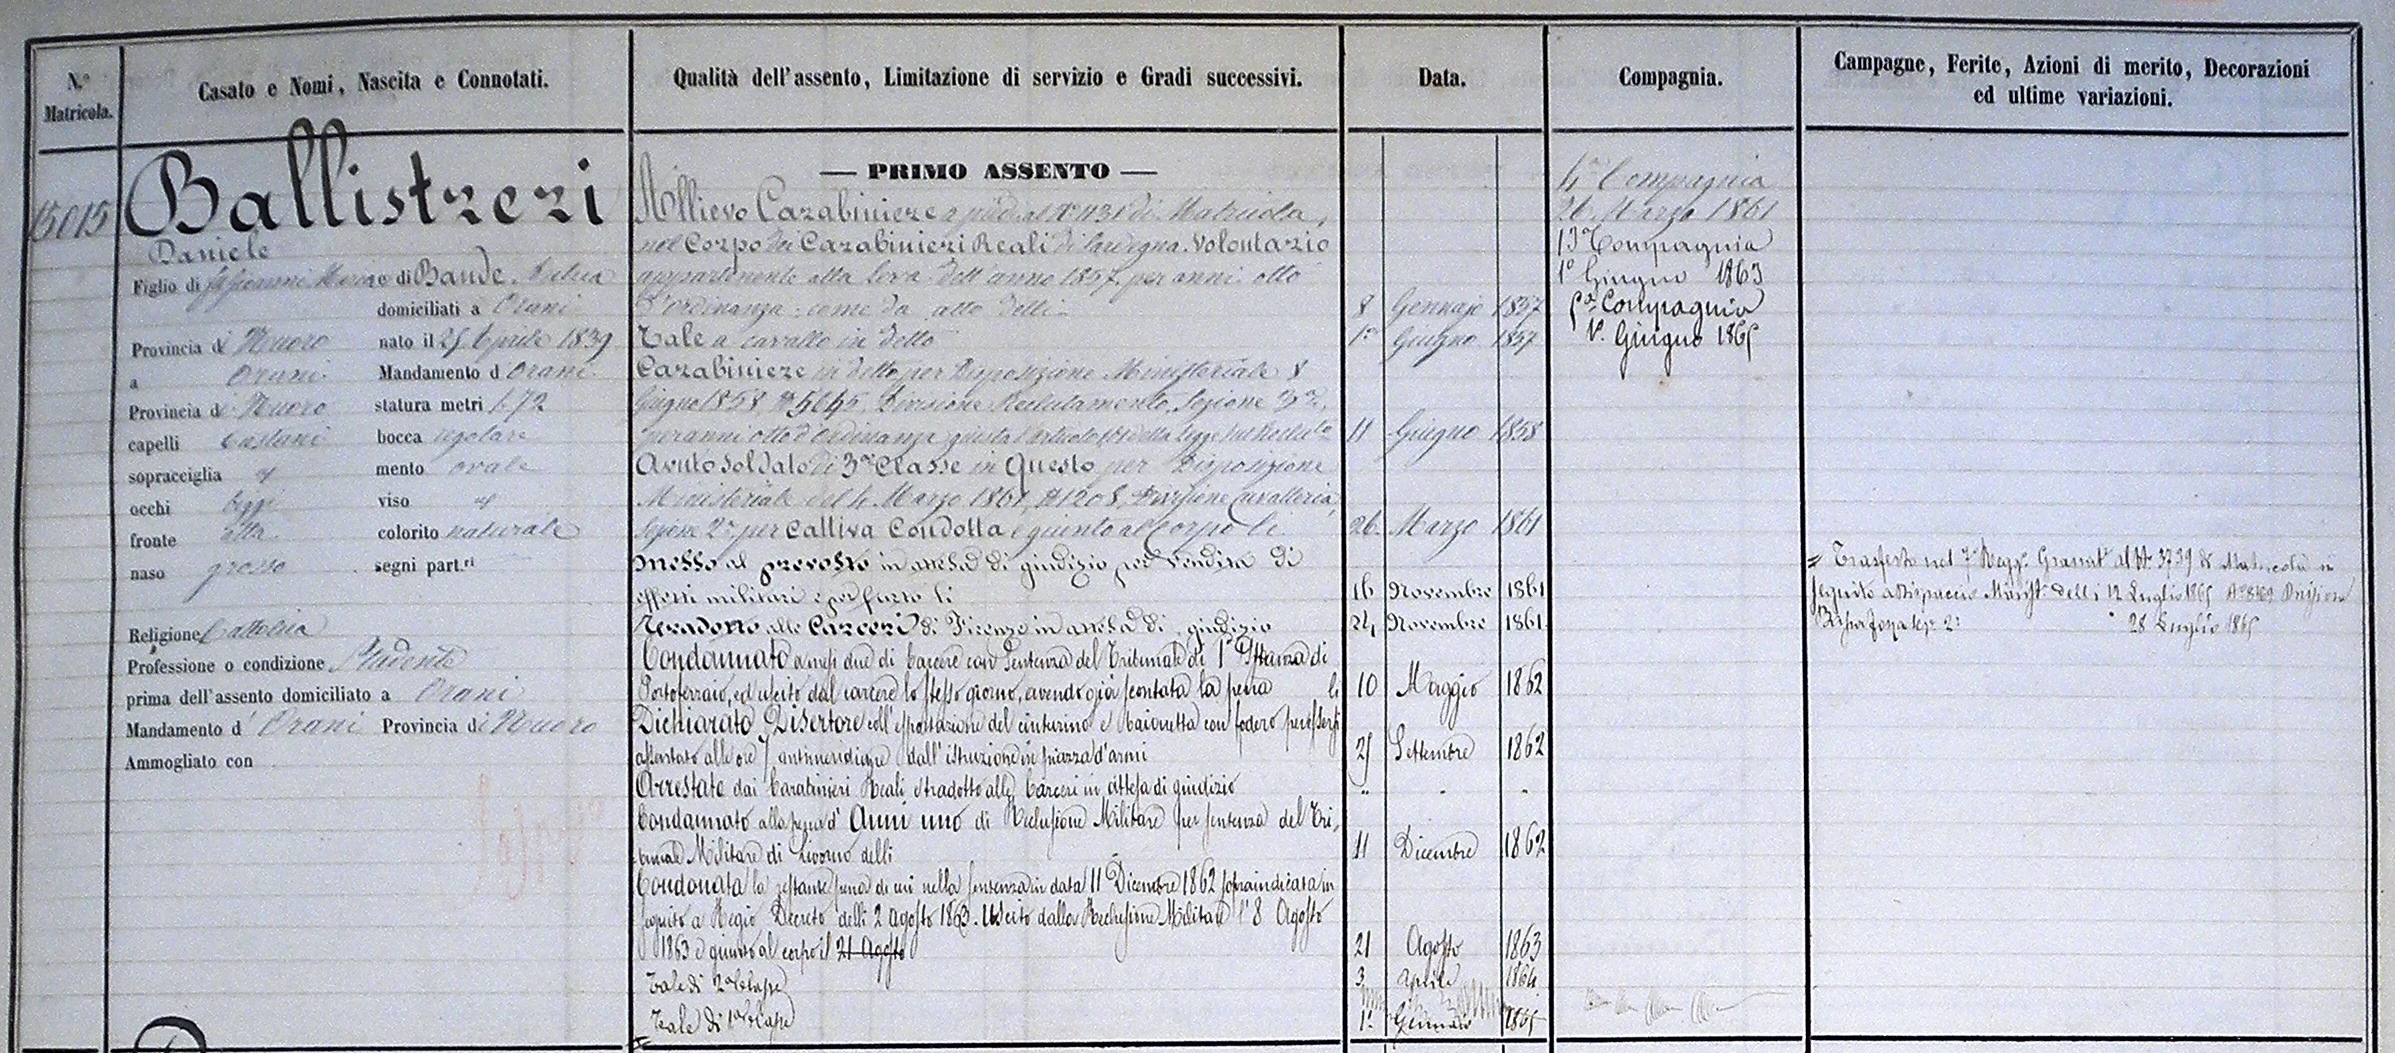 N.º Matricola.
Casato e Nomi, Nascita e Connotati.
Qualità dell'assento, Limitazione di servizio e Gradi successivi.
Data.
Compagnia.
Campagne, Ferite, Azioni di merito, Decorazioni
ed ultime variazioni.
15015
Ballistreri
Daniele
Figlio di Giovanni Maria e di Baude
domiciliati a Orani
Provincia di Nuoro nato il 25 Aprile 1839
a Orani Mandamento d Orani
Provincia di Nuoro statura metri 1.72
capelli Castani bocca regolare
sopracciglia id mento ovale
occhi bigi viso id
fronte alta colorito naturale
naso grosso segni part.ri
Religione Cattolica
Professione o condizione Studente
prima dell'assento domiciliato a Orani
Mandamento d'Orani Provincia di Nuoro
Ammogliato con
— PRIMO ASSENTO —
Allievo Carabiniere a piedi al Nº 1131 di Matricola,
nel Corpo dei Carabinieri Reali di Sardegna. Volontario
appartenente alla leva dell'anno 1857 per anni otto
d'ordinanza come da atto delli 8 Gennajo 1857
Tale a cavallo in detto 1º Giugno 1857
Carabiniere in detto per Disposizione Ministeriale 8
Giugno 1858, Nº 5645, Divisione Reclutamento, Sezione 3ª,
per anni otto d'ordinanza giusta l'articolo della legge sul 11 Giugno 1858
Avuto Soldato di 3ª Classe in Questo per Disposizione
Ministeriale del 4 Marzo 1861, Nº 1208, Divisione Cavalleria,
Sezione 2ª per Cattiva Condotta e giunto al Corpo li 26 Marzo 1861
Messo al prevosto in attesa di giudizio per vendita di
effetti militari e per furto li 16 Novembre 1861
Tradotto alle Carceri di Firenze in attesa di giudizio 24 Novembre 1861
Condannato a mesi due di Carcere con Sentenza del Tribunale di 1ª Istanza di
Portoferraio, ed uscito dal carcere lo stesso giorno, avendo già scontata la pena li 10 Maggio 1862
Dichiarato Disertore coll'esportazione del cinturino e baionetta con fodero per essersi
assentato alle ore 7 antimeridiane dall'istruzione in piazza d'armi 25 Settembre 1862
Arrestato dai Carabinieri Reali e tradotto alle Carceri in attesa di giudizio " " "
Condannato alla pena d'Anni uno di Reclusione Militare per sentenza del Tri-
bunale Militare di Livorno delli 11 Dicembre 1862
Condonata la restante pena di cui nella sentenza in data 11 Dicembre 1862 sopraindicata in
seguito a Regio Decreto delli 2 Agosto 1863. Uscito dalla Reclusione Militare l'8 Agosto
1863 e giunto al corpo il 21 Agosto 21 Agosto 1863
Tale di 2ª Classe 3 Aprile 1864
Tale di 1ª Classe 1º Gennaio 1865
4ª Compagnia
26 Marzo 1861
13ª Compagnia
1º Giugno 1863
Compagnia
1º Giugno 1865
Trasferto nel 7º Regg. Granat. al Nº 3739 di Matricola in
seguito a Dispaccio Minist. delli 12 Luglio 1865 Nº 8169 Divisione
28 Luglio 1865